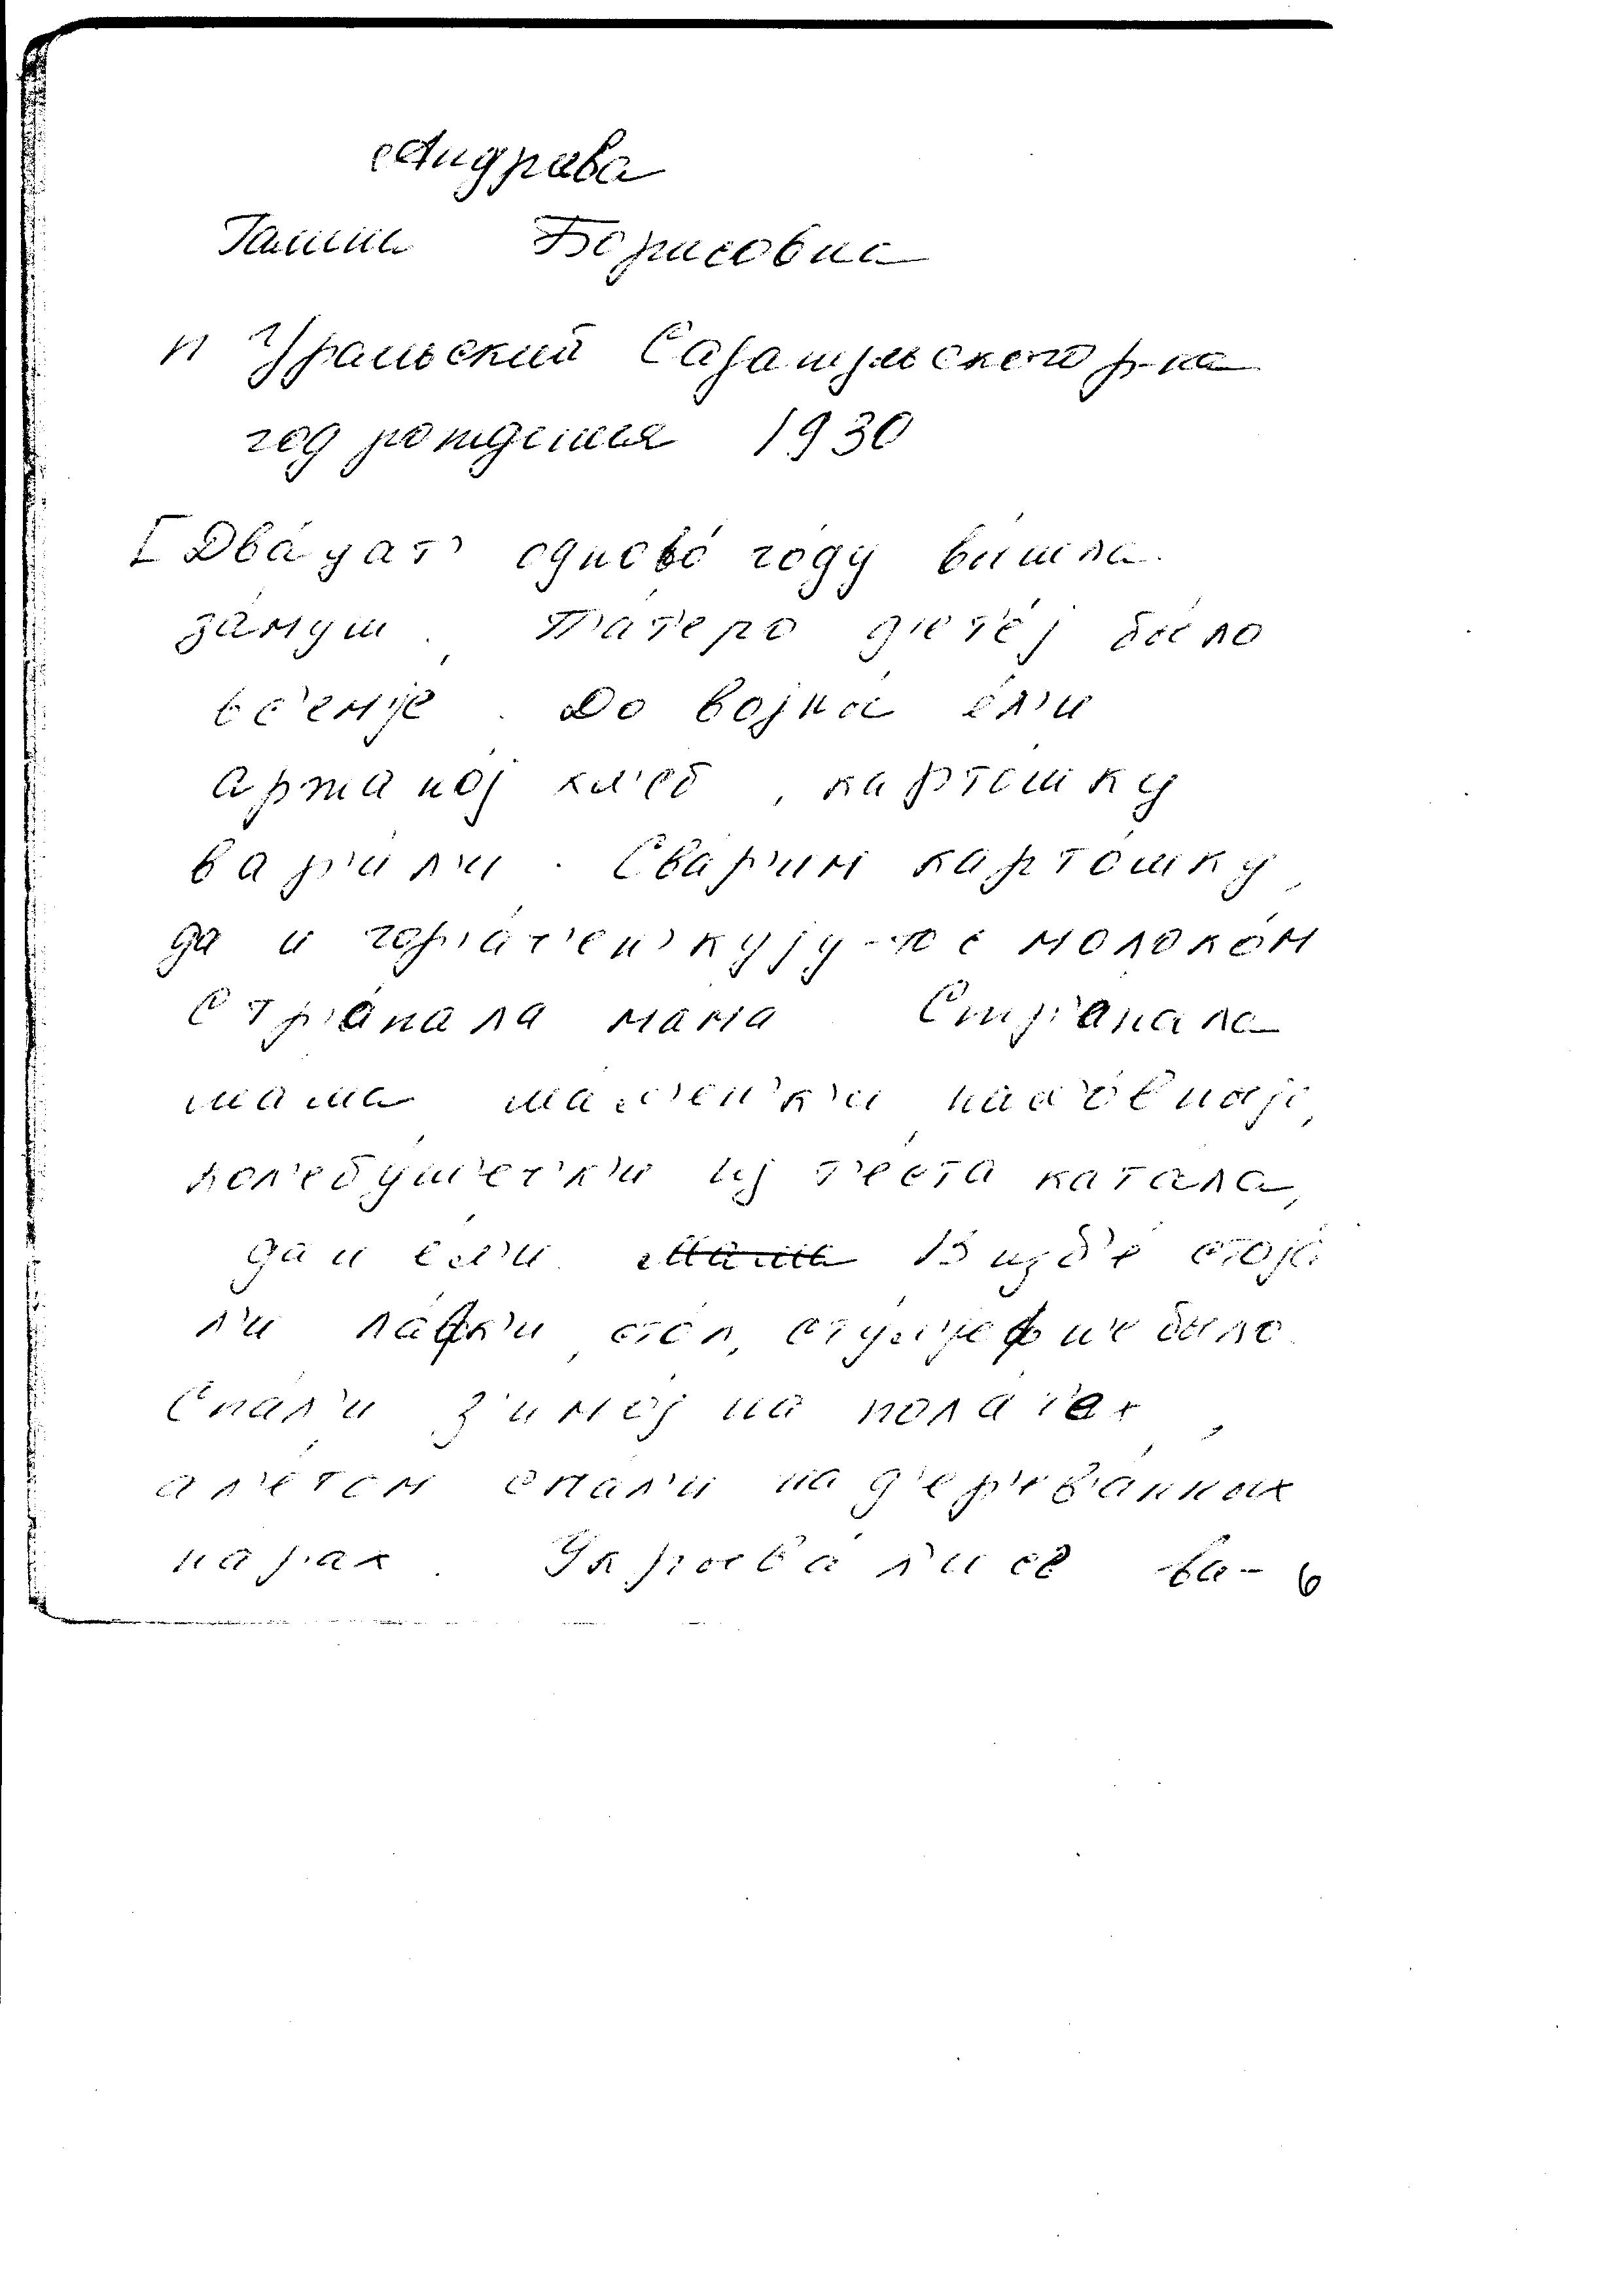 Андраева
Галина Борисовна
п Уральский Сарапульского р-на
год рождения 1930
[Два́цат' одново́ го́ду вы́шла
за́муш. П'а́т'еро д'ет'е́j бы́ло
вс'емjе́. До војны́ е́л'и
аржано́j хл'еб, карто́шку
вар'и́л'и. Сва́р'им карто́шку,
да и гор'а́ч'ен'куjу-то с молоко́м
Стр'а́пала мама Стр'а́пала
мама ма́л'ен'к'и
кол'ебу́ш'ечк'и из т'е́ста ката́ла,
да и е́л'и. В изб'е́ стоjа́
л'и ла́фк'и, стол, сту́л'jеф н'е́ было.
Спа́л'и з'имо́j на пола́т'ах,
а л'е́том спа́л'и на д'ер'ев'а́нных
нарах. Укрыва́л'ис'